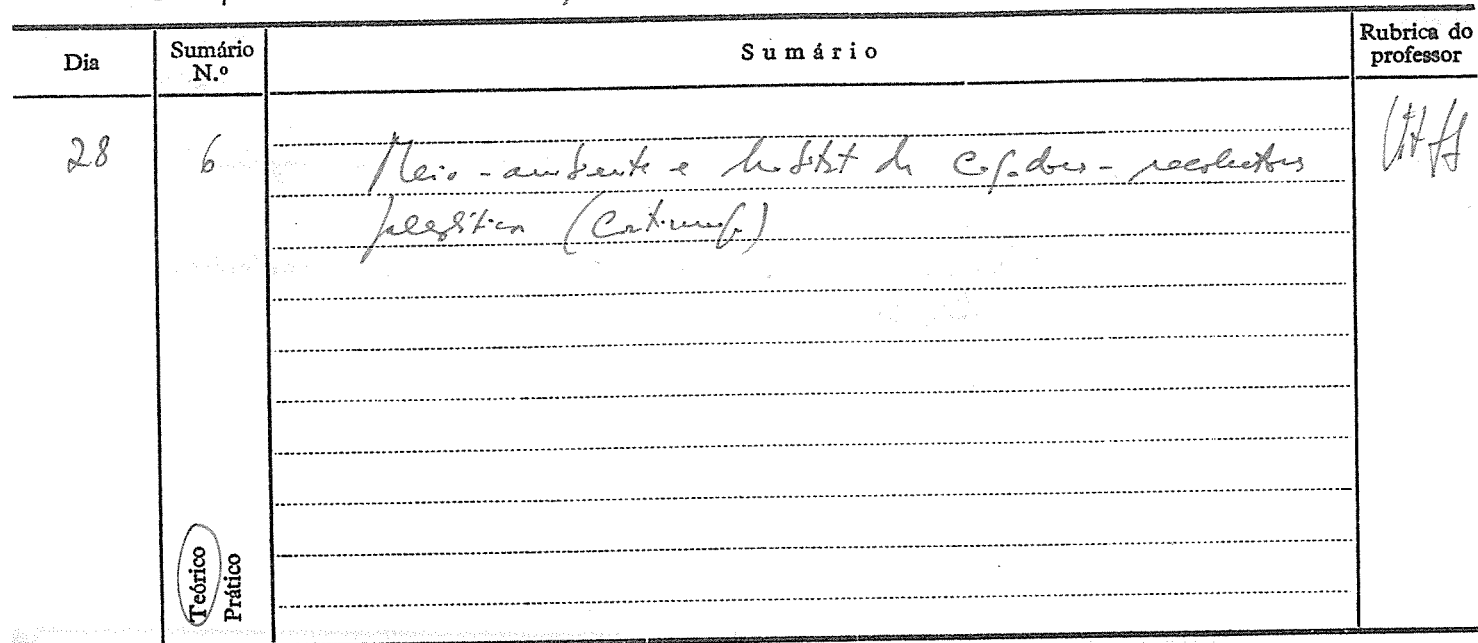 Dia
Sumário N.º
Sumário
Rubrica do professor
28
6
Meio-ambiente e habitat de caçadores-recolectores
paleolíticos (Continuação)
Teórico
Prático